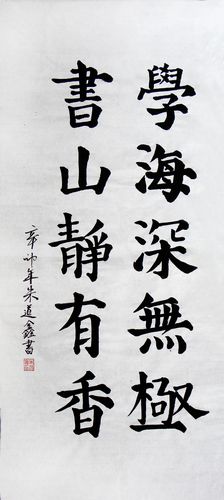 學海深無極
書山靜有香
辛卯年朱道鑫書